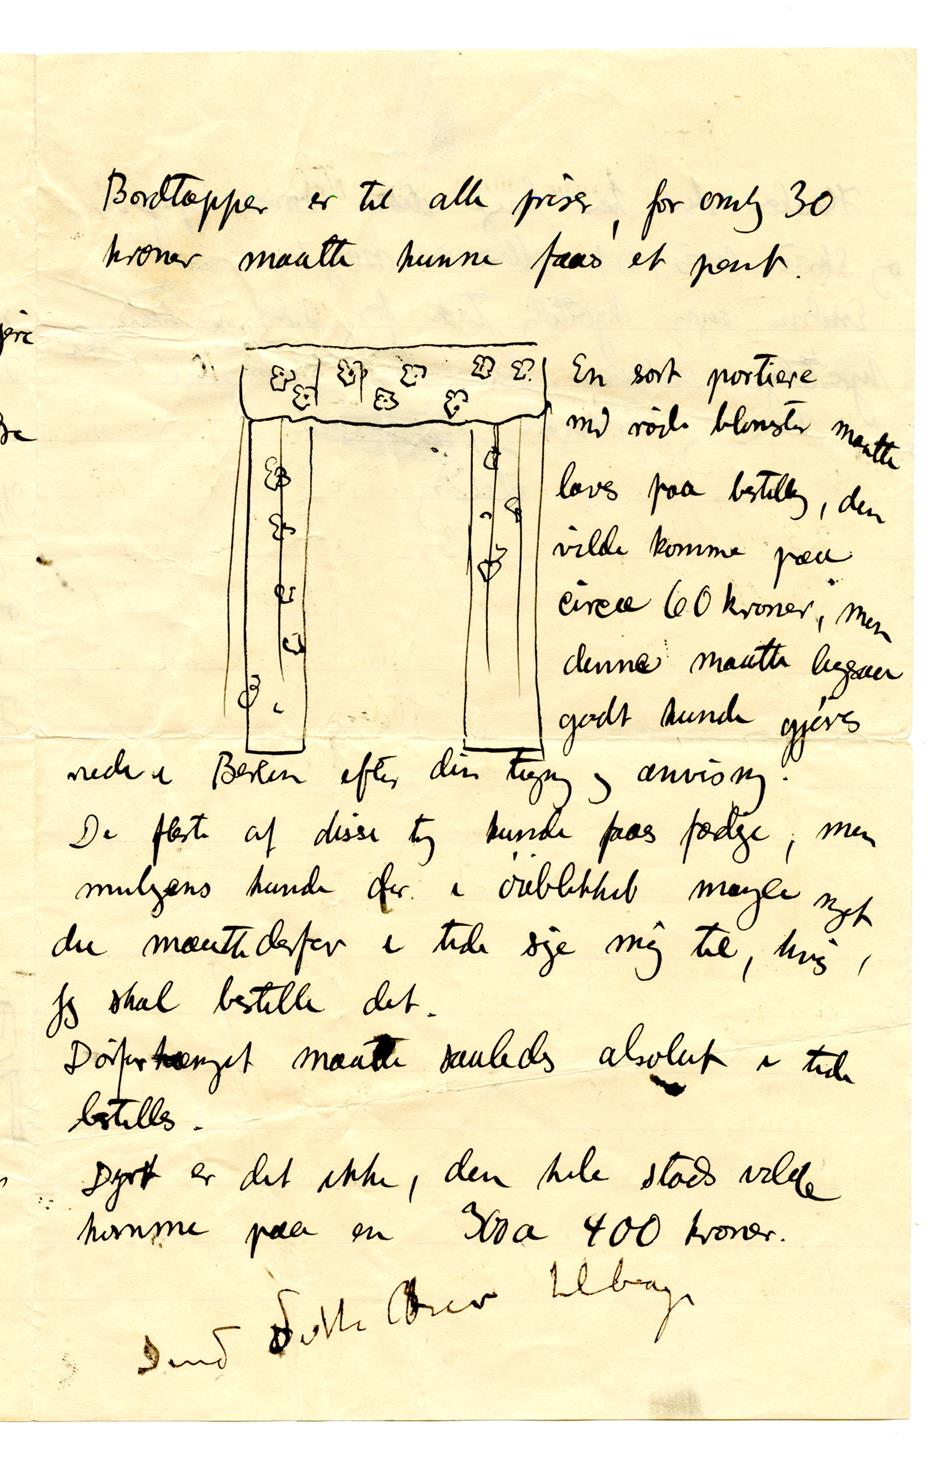 Bordtæpper er til alle priser, for omtr 30
kroner maatte kunne faaes et pent.
En sort portiere
med røde blomster maatte
laves paa bestilling, den
vilde komme paa
circa 60 kroner, men
denne maatte ligesaa
godt kunde gjøres
nede i Berlin efter din tegning og anvisning.
De fleste af disse ting kunde faaes færdige, men
muligens kunde der i øieblikket mangle noget
du maatte derfor i tide sige mig til, hvis
jeg skal bestille det.
Dørforhænget maatte saaledes absolut i tide
bestilles.
Dyrt er det ikke, den hele stads vilde
komme paa en 300 a 400 kroner.
Send dette Brev tilbage